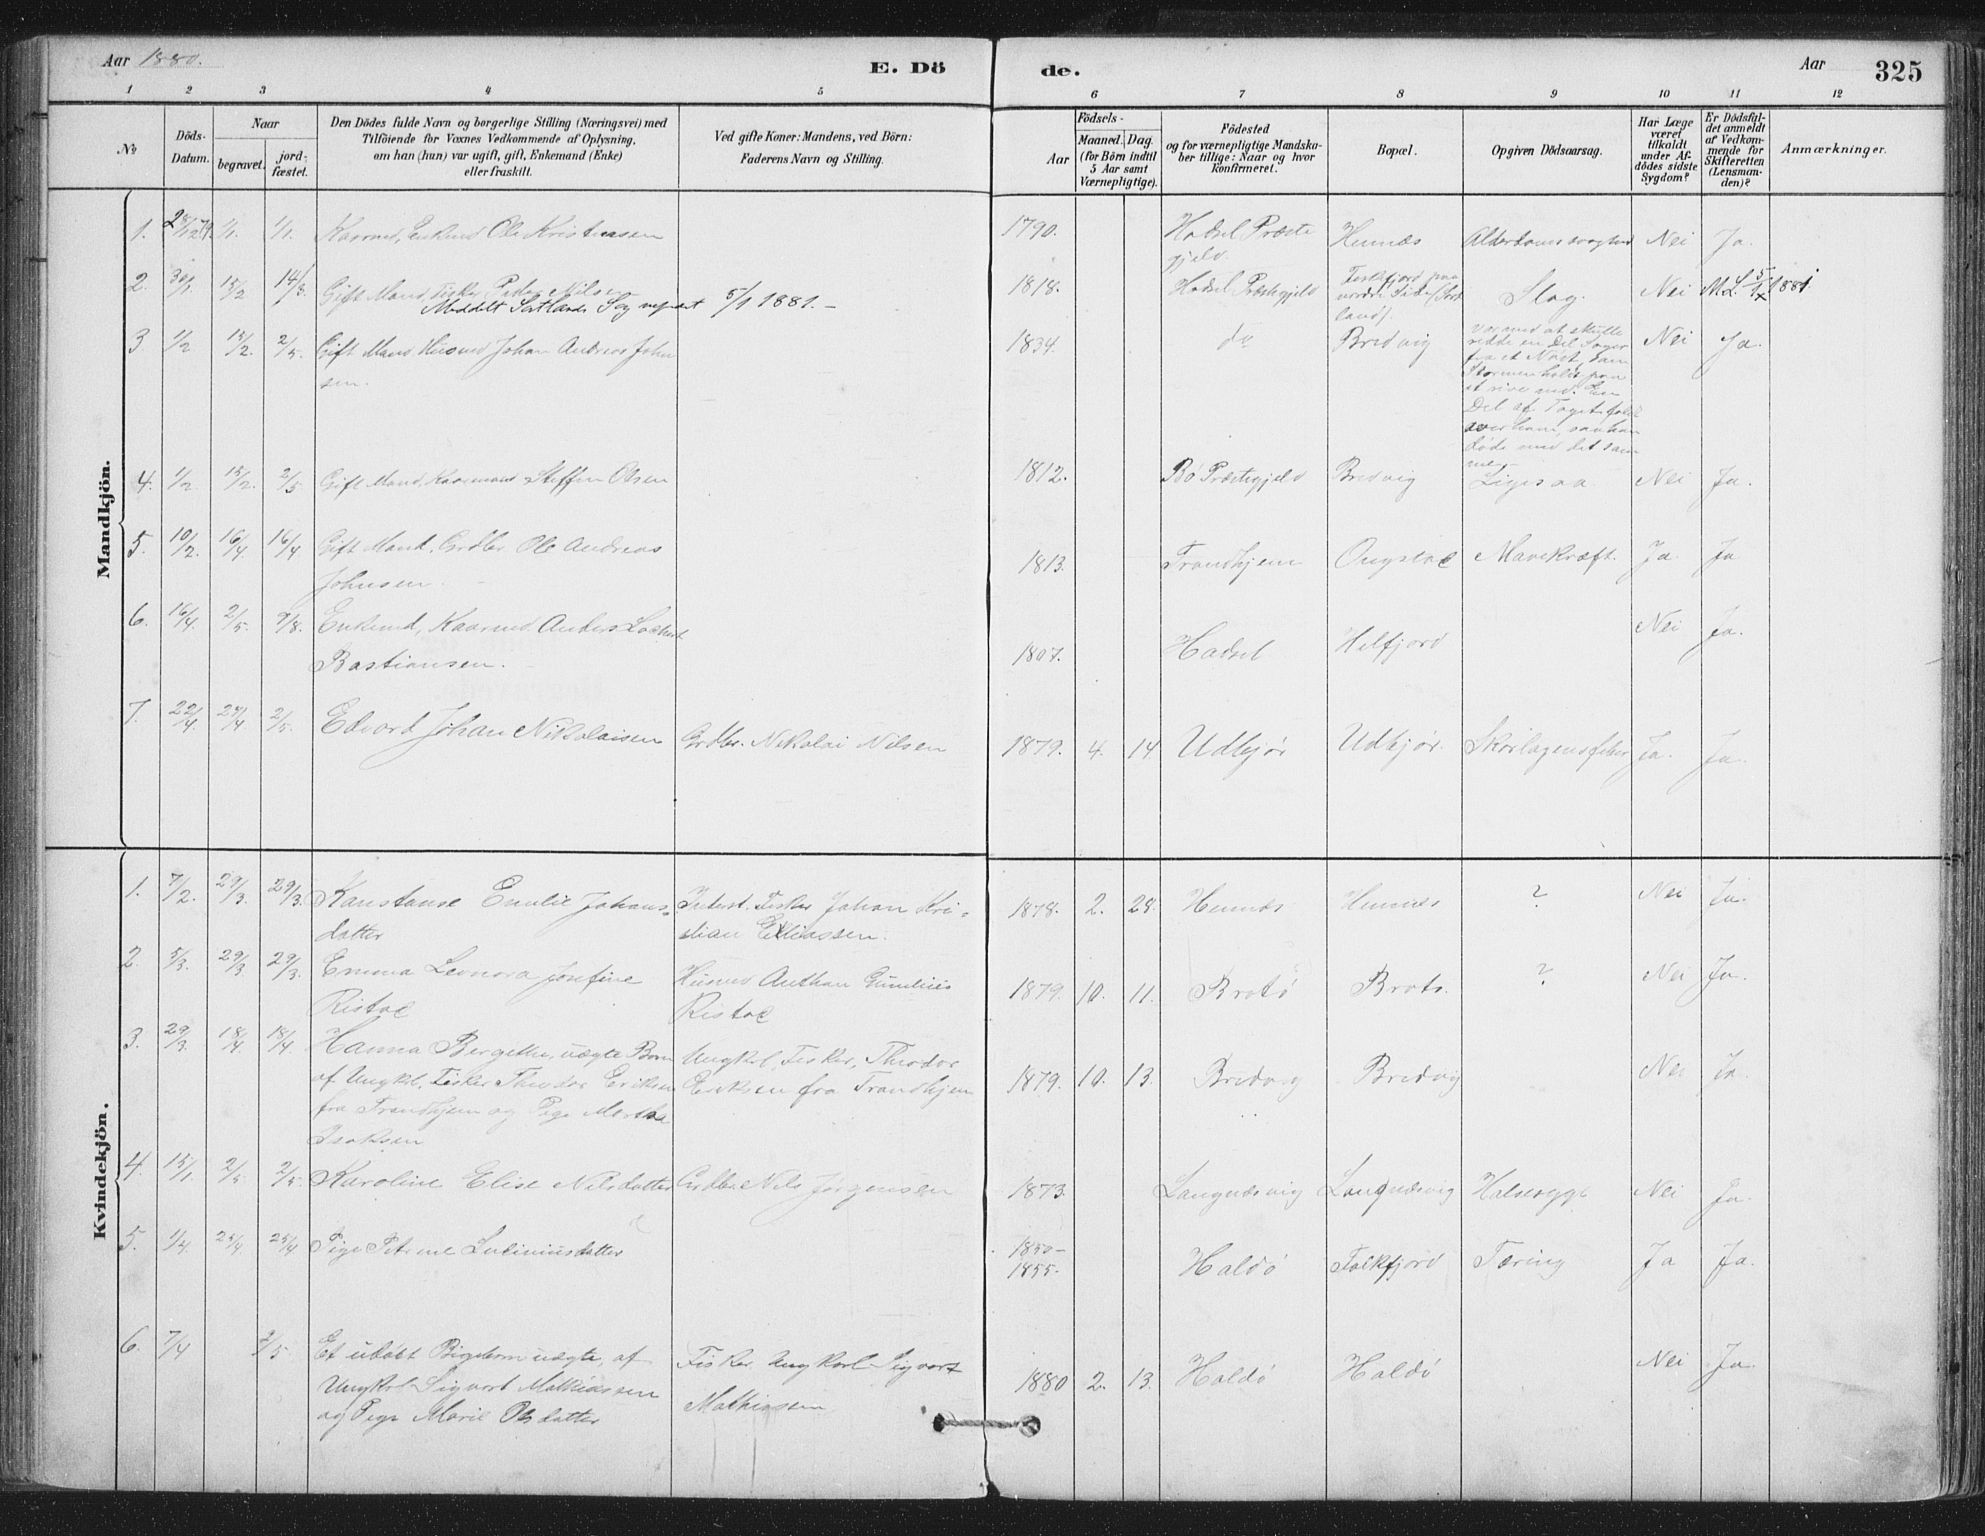 Aar 1880.
E. Dö
de.
Aar
325
1 2 3 4 5 6 7 8 9 10 11 12
No
Döds-
Datum.
Naar
begravet.
jord-
fæstet.
Den Dödes fulde Navn og borgerlige Stilling (Næringsvei) med
Tilföiende for Voxnes Vedkommende af Oplysning,
om han (hun) var ugift, gift, Enkemand (Enke)
eller fraskilt.
Ved gifte Koner: Mandens, ved Börn:
Faderens Navn og Stilling.
Födsels-
Aar
Maaned.
Dag.
(for Börn indtil
5 Aar samt
Værnepligtige).
Födested
og for værnepligtige Mandska-
ber tillige: Naar og hvor
konfirmeret.
Bopæl.
Opgiven Dödsaarsag.
Har Læge
været
tilkaldt
under Af-
dödes sidste
Sygdom?
Er Dödsfal-
det anmeldt
af Vedkom-
mende for
Skifteretten
(Lensman-
den)?
Anmærkninger.
Mandkjön.
1. 28/12 79. 1/1. 1/1. Kaarmd, Enkemd Ole Kristensen 1790. Hadsel Præste
gjeld. Hennæs Alderdomssvaghed Nei Ja.
2. 30/1. 15/2 14/3. Gift Mand, Fisker Peder Nilsen 1818. Hadsel Præstegjeld
nordre Side (Sort
land). Slag. Nei M.L. 5/1 1881
Meddelt Sortlands Sognepræst 5/1 1881. –
3 1/2 15/2. 2/5. Gift Mand Husmd Johan Andreas John
sen. 1834. do Bredvig Nei Ja.
Var med at skulle
redde en Del Sager
fra et Nøst, som
Stormen holdt paa
at rive ned. En
Del af Taget faldt
over ham, saa han
døde med det sam
me.
4. 1/2. 15/2. 2/5 Gift Mand, Kaarmand Steffen Olsen 1812. Bø Præstegjeld Bredvig Ligesaa Nei Ja.
5. 10/2. 16/4 16/4 Gift Mand, Grdbr. Ole Andreas
Johnsen. 1813. Trondhjem Ongstad Mavekræft. Ja. Ja
6. 16/4. 2/5. 9/8. Enkemd, Kaarmd. Anders Lockert
Bastiansen. 1807. Hadsel Helfjord Nei Ja.
7. 22/4 25/4 2/5. Edvard Johan Nikolaisen Grdbr. Nikolai Nilsen 1879. 4. 14 Udhjør Udhjør. Skarlagensfeber Ja. Ja.
Kvindekjön.
1. 7/2. 29/3. 29/3. Konstanse Emelie Johans-
datter Inderst. Fisker Johan Kri-
stian Elliassen. 1878. 2. 28. Hennæs Hennæs ? Nei Ja.
2. 5/3. 29/3 29/3. Emma Leonora Josefine
Ristad Husmd Anthon Cornelius
Ristad 1879. 10. 11. Brotø Brotø. ? Nei Ja.
3. 29/3 18/4 18/4 Hanna Bergethe, uægte Barn
af Ungkl. Fisker Theodor Eriksen
fra Trondhjem og Pige Merthe
Isaksen Ungkrl. Fisker, Theodor
Eriksen fra Trondhjem 1879. 10. 13. Bredvig Bredvig Nei Ja.
4. 15/1. 2/5 2/5. Karoline Elise Nilsdatter Grdbr. Nils Jørgensen 1873. Langnæsvig Langnæsvig Halssyge Nei Ja.
5. 1/4. 25/4 25/4 Pige Petrine Lutiniusdatter 1850-
1855. Haldø Falkfjord Tæring Ja Ja.
6. 7/4 2/5. Et udøbt Pigebarn uægte, af
Ungkrl Sigvart Mathiassen
og Pige Marie Olsdatter Fisker, Ungkarl Sigvart
Mathiassen 1880 2. 13. Haldø Haldø Nei Ja.